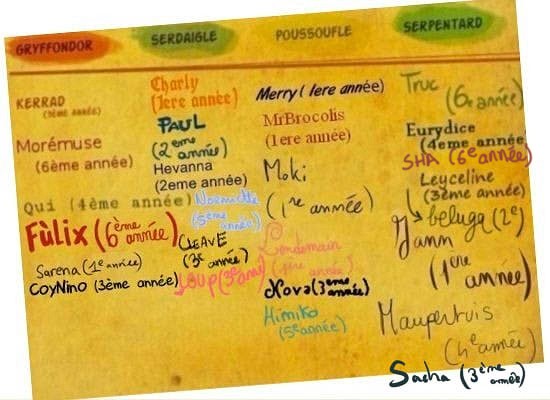 GRYFFONDOR
KERRAD
(3ème année)
Morémuse
(6ème année)
Qui (4ème année)
Fùlix (6ème année)
Sarena (1e année)
CoyNino (3ème année)
SERDAIGLE
Charly
(1ere année)
PAUL
(2eme année)
Hevanna
(2eme année)
(5eme année)
CLEAVE
(3e année)
Loup (3e ann)
POUSSOUFLE
Merry (1ere année)
MrBrocolis
(1ere année)
Moki
(1re année)
Lendemain
(1ère année)
Nova (3eme année)
Himiko
(5e année)
SERPENTARD
Truc
(6e année)
Eurydice
(4eme année)
SHA (6e année)
Leyceline
(3ème année)
beluga (2e)
Yann
(1ere année)
Maupertuis
(4e année)
Sacha (3ème année)